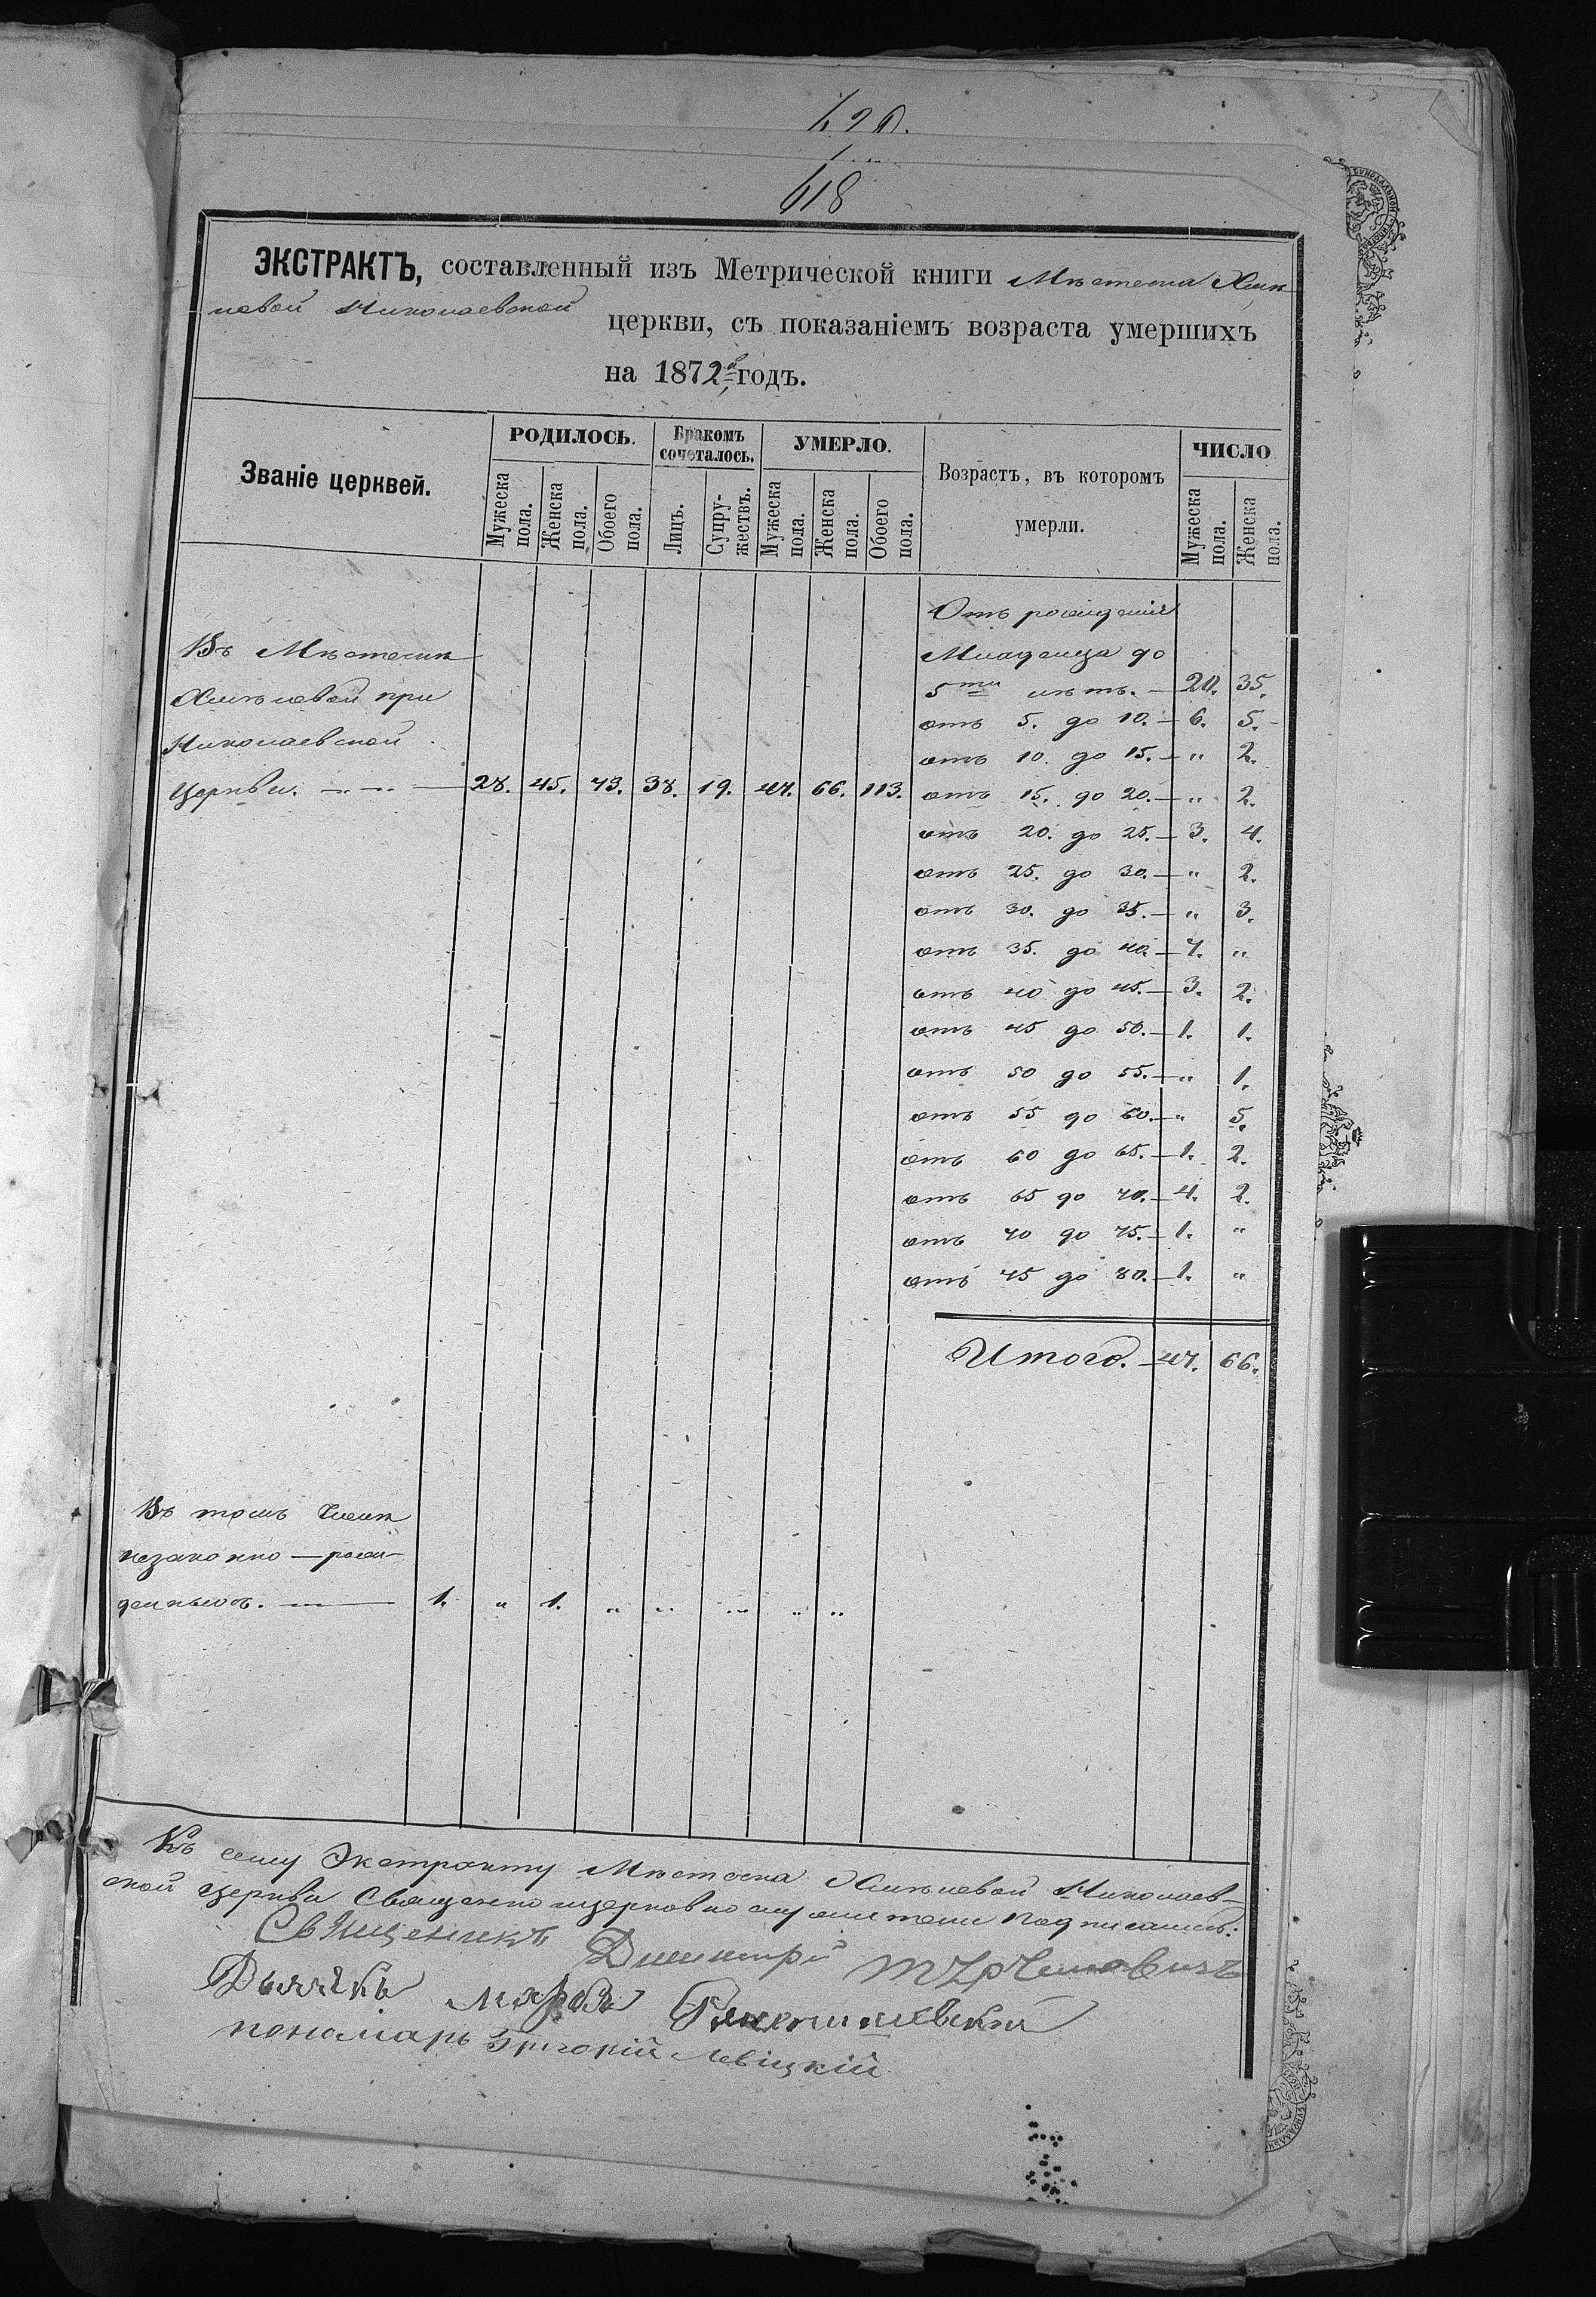 618
ЭКСТРАКТЪ, составленный изъ Метрической книги Мѣстечка Хмѣ-
левой Николаевской церкви, съ показаніемъ возраста умершихъ
на 1872й годъ.
Званіе церквей.
РОДИЛОСЬ.
Бракомъ сочеталось.
УМЕРЛО.
Возрастъ, въ которомъ умерли.
ЧИСЛО
Мужеска пола.
Женска пола.
Обоего пола.
Лицъ.
Супружествъ.
Мужеска пола.
Женска пола.
Обоего пола.
Мужеска пола.
Женска пола.
Отъ рожденія
Въ Мѣстечкѣ
Младенца до
Хмѣлевой при
5ти лѣтъ. — 20. 35.
Николаевской
отъ 5. до 10. — 6. 5.
отъ 10. до 15. — " 2.
Церкви. — 28. 45. 73. 38. 19. 47. 66. 113.
отъ 15. до 20. — " 2.
отъ 20. до 25. — 3. 4.
отъ 25. до 30. — " 2.
отъ 30. до 35. — " 3.
отъ 35. до 40. — 7. "
отъ 40 до 45. — 3. 2.
отъ 45 до 50. — 1. 1.
отъ 50 до 55. — " 1.
отъ 55 до 60. — " 5.
отъ 60 до 65. — 1. 2.
отъ 65 до 70. — 4. 2.
отъ 70 до 75. — 1. "
отъ 75 до 80. — 1. "
Итого. — 47. 66.
Въ томъ числѣ
незаконно — рож-
денныхъ. — 1. " 1. " " " " "
Къ сему Экстракту Мѣстечка Хмѣлевой Николаев-
ской Церкви Священно церковно служители подписались:
Священникъ Димитрій
Дьячкъ Марко
пономарь Григорій Левіцкій